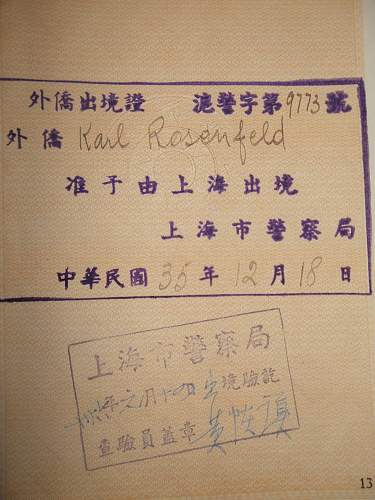 外僑出境證 滬警字第9773號
外僑 Karl Rosenfeld
准予由上海出境
上海市警察局
中華民國35年12月18日
上海市警察局
六月十四日出境驗訖
查驗員蓋章 黃
13